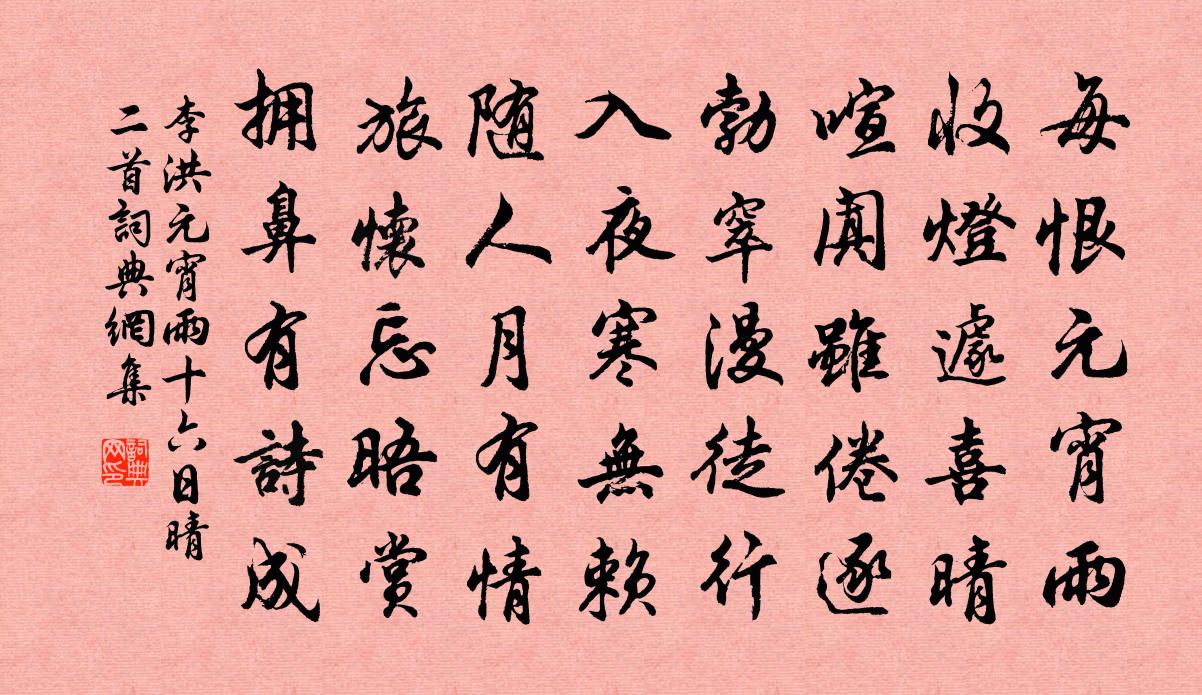 每恨元宵雨
收燈遽喜晴
喧闐雖倦逐
勃窣漫徒行
入夜寒無賴
随人月有情
旅懷忘晤賞
拥鼻有詩成
李洪元宵雨十六日晴
二首詞典網集
詞典
网印